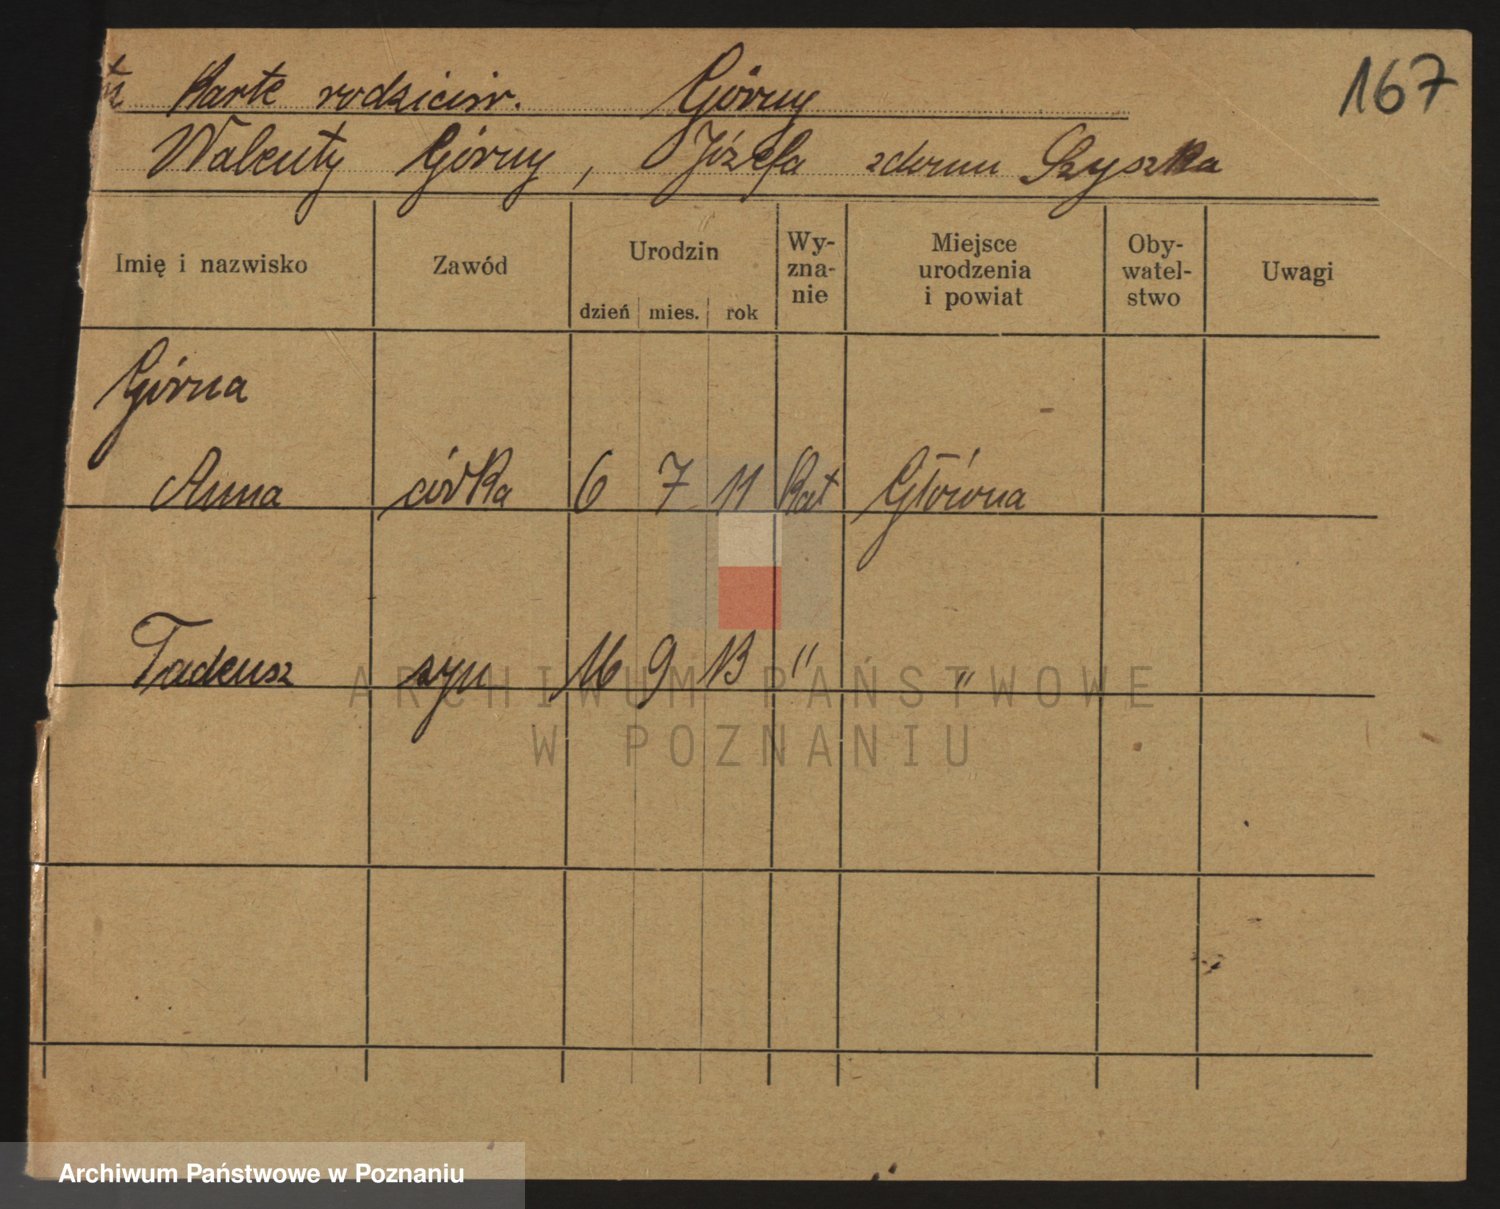 Karte rodziciów. Górny 167
Walenty Górny, Józefa zdomu Szyszka
Imię i nazwisko Zawód Urodzin dzień mies. rok Wy-zna-nie Miejsce urodzenia i powiat Oby-watel-stwo Uwagi
Górna
Anna córka 6 7 11 Kat Główna
Tadeusz syn 16 9 13 " "
ARCHIWUM PAŃSTWOWE
W POZNANIU
Archiwum Państwowe w Poznaniu